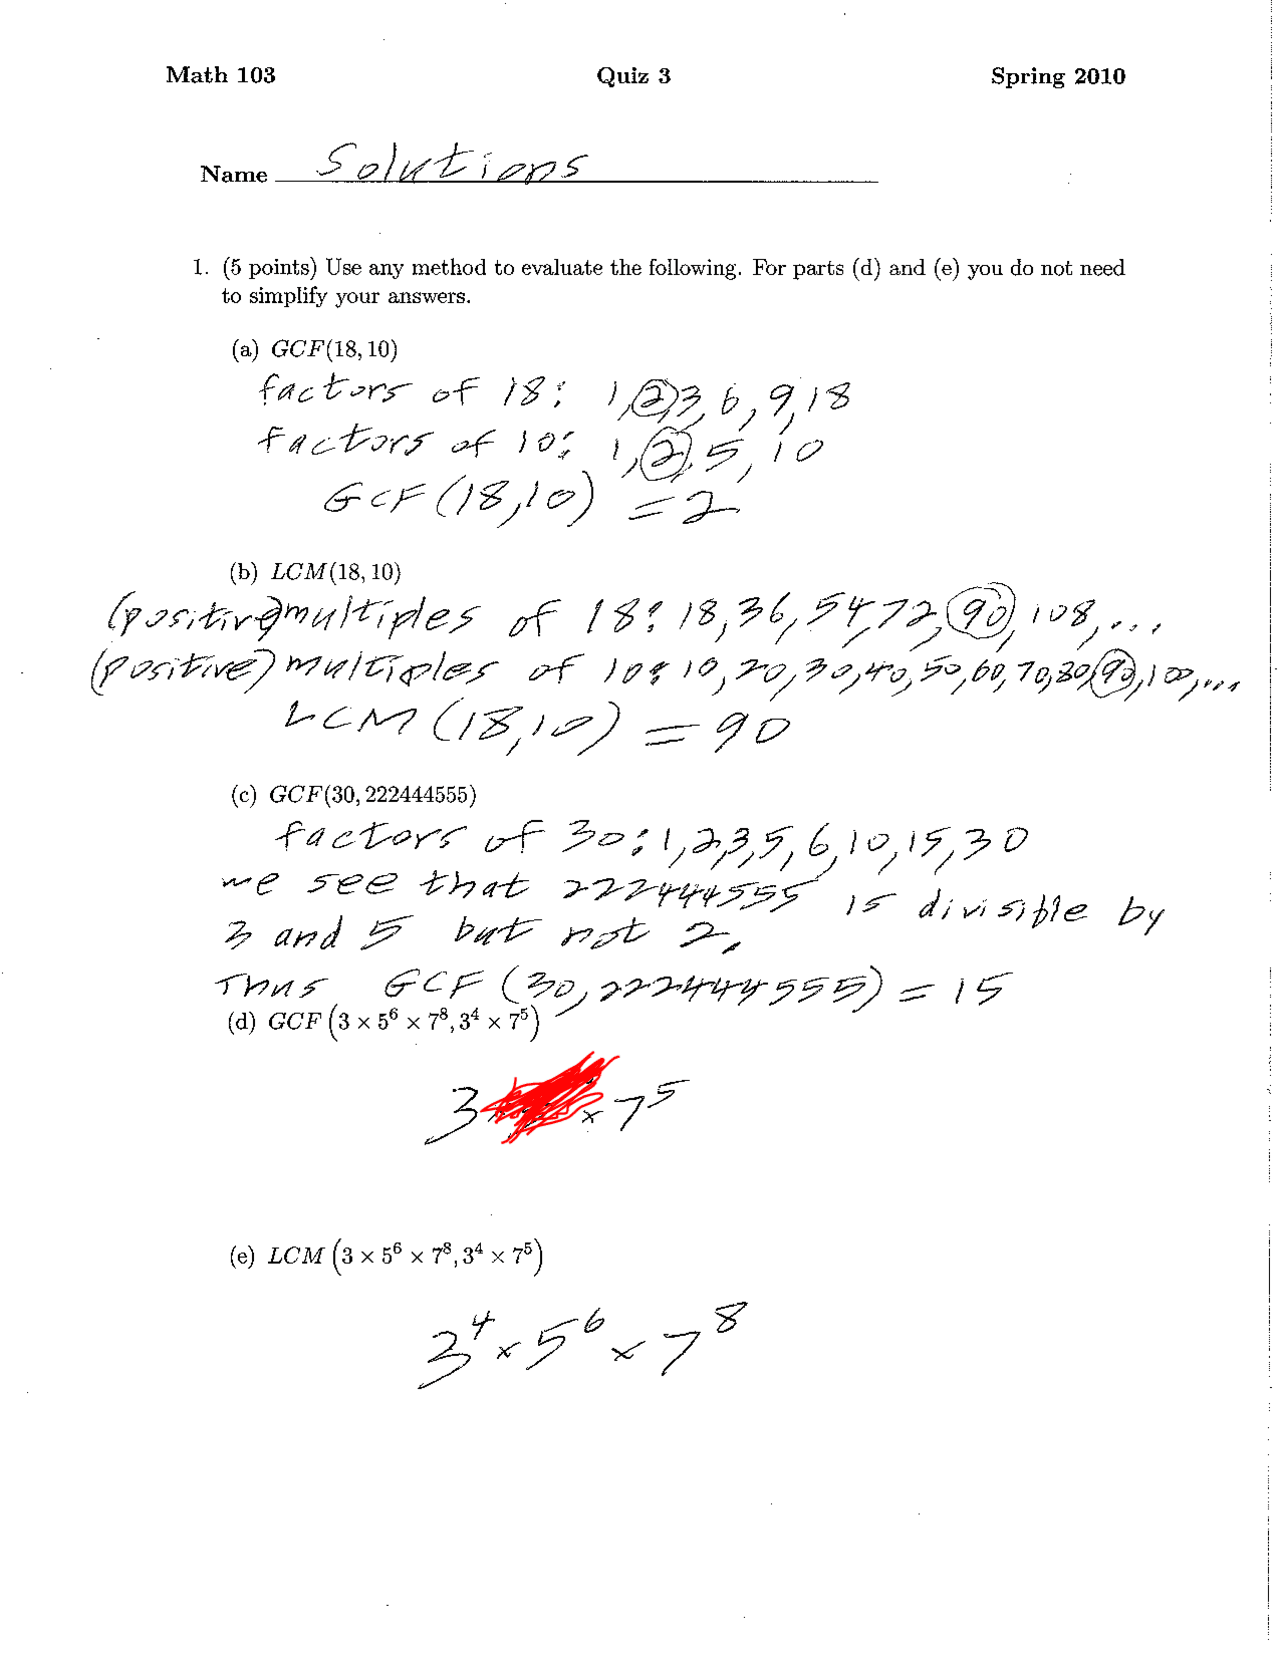 Math 103 Quiz 3 Spring 2010
Name Solutions
1. (5 points) Use any method to evaluate the following. For parts (d) and (e) you do not need
to simplify your answers.
(a) GCF(18, 10)
factors of 18: 1,2,3,6,9,18
factors of 10: 1,2,5,10
GCF(18,10) = 2
(b) LCM(18, 10)
(positive) multiples of 18: 18,36,54,72,90,108,...
(positive) multiples of 10: 10,20,30,40,50,60,70,80,90,100,...
LCM(18,10) = 90
(c) GCF(30, 222444555)
factors of 30: 1,2,3,5,6,10,15,30
we see that 222444555 is divisible by
3 and 5 but not 2.
Thus GCF(30,222444555) = 15
(d) GCF(3 × 5⁶ × 7⁸, 3⁴ × 7⁵)
3 × 7⁵
(e) LCM(3 × 5⁶ × 7⁸, 3⁴ × 7⁵)
3⁴ × 5⁶ × 7⁸